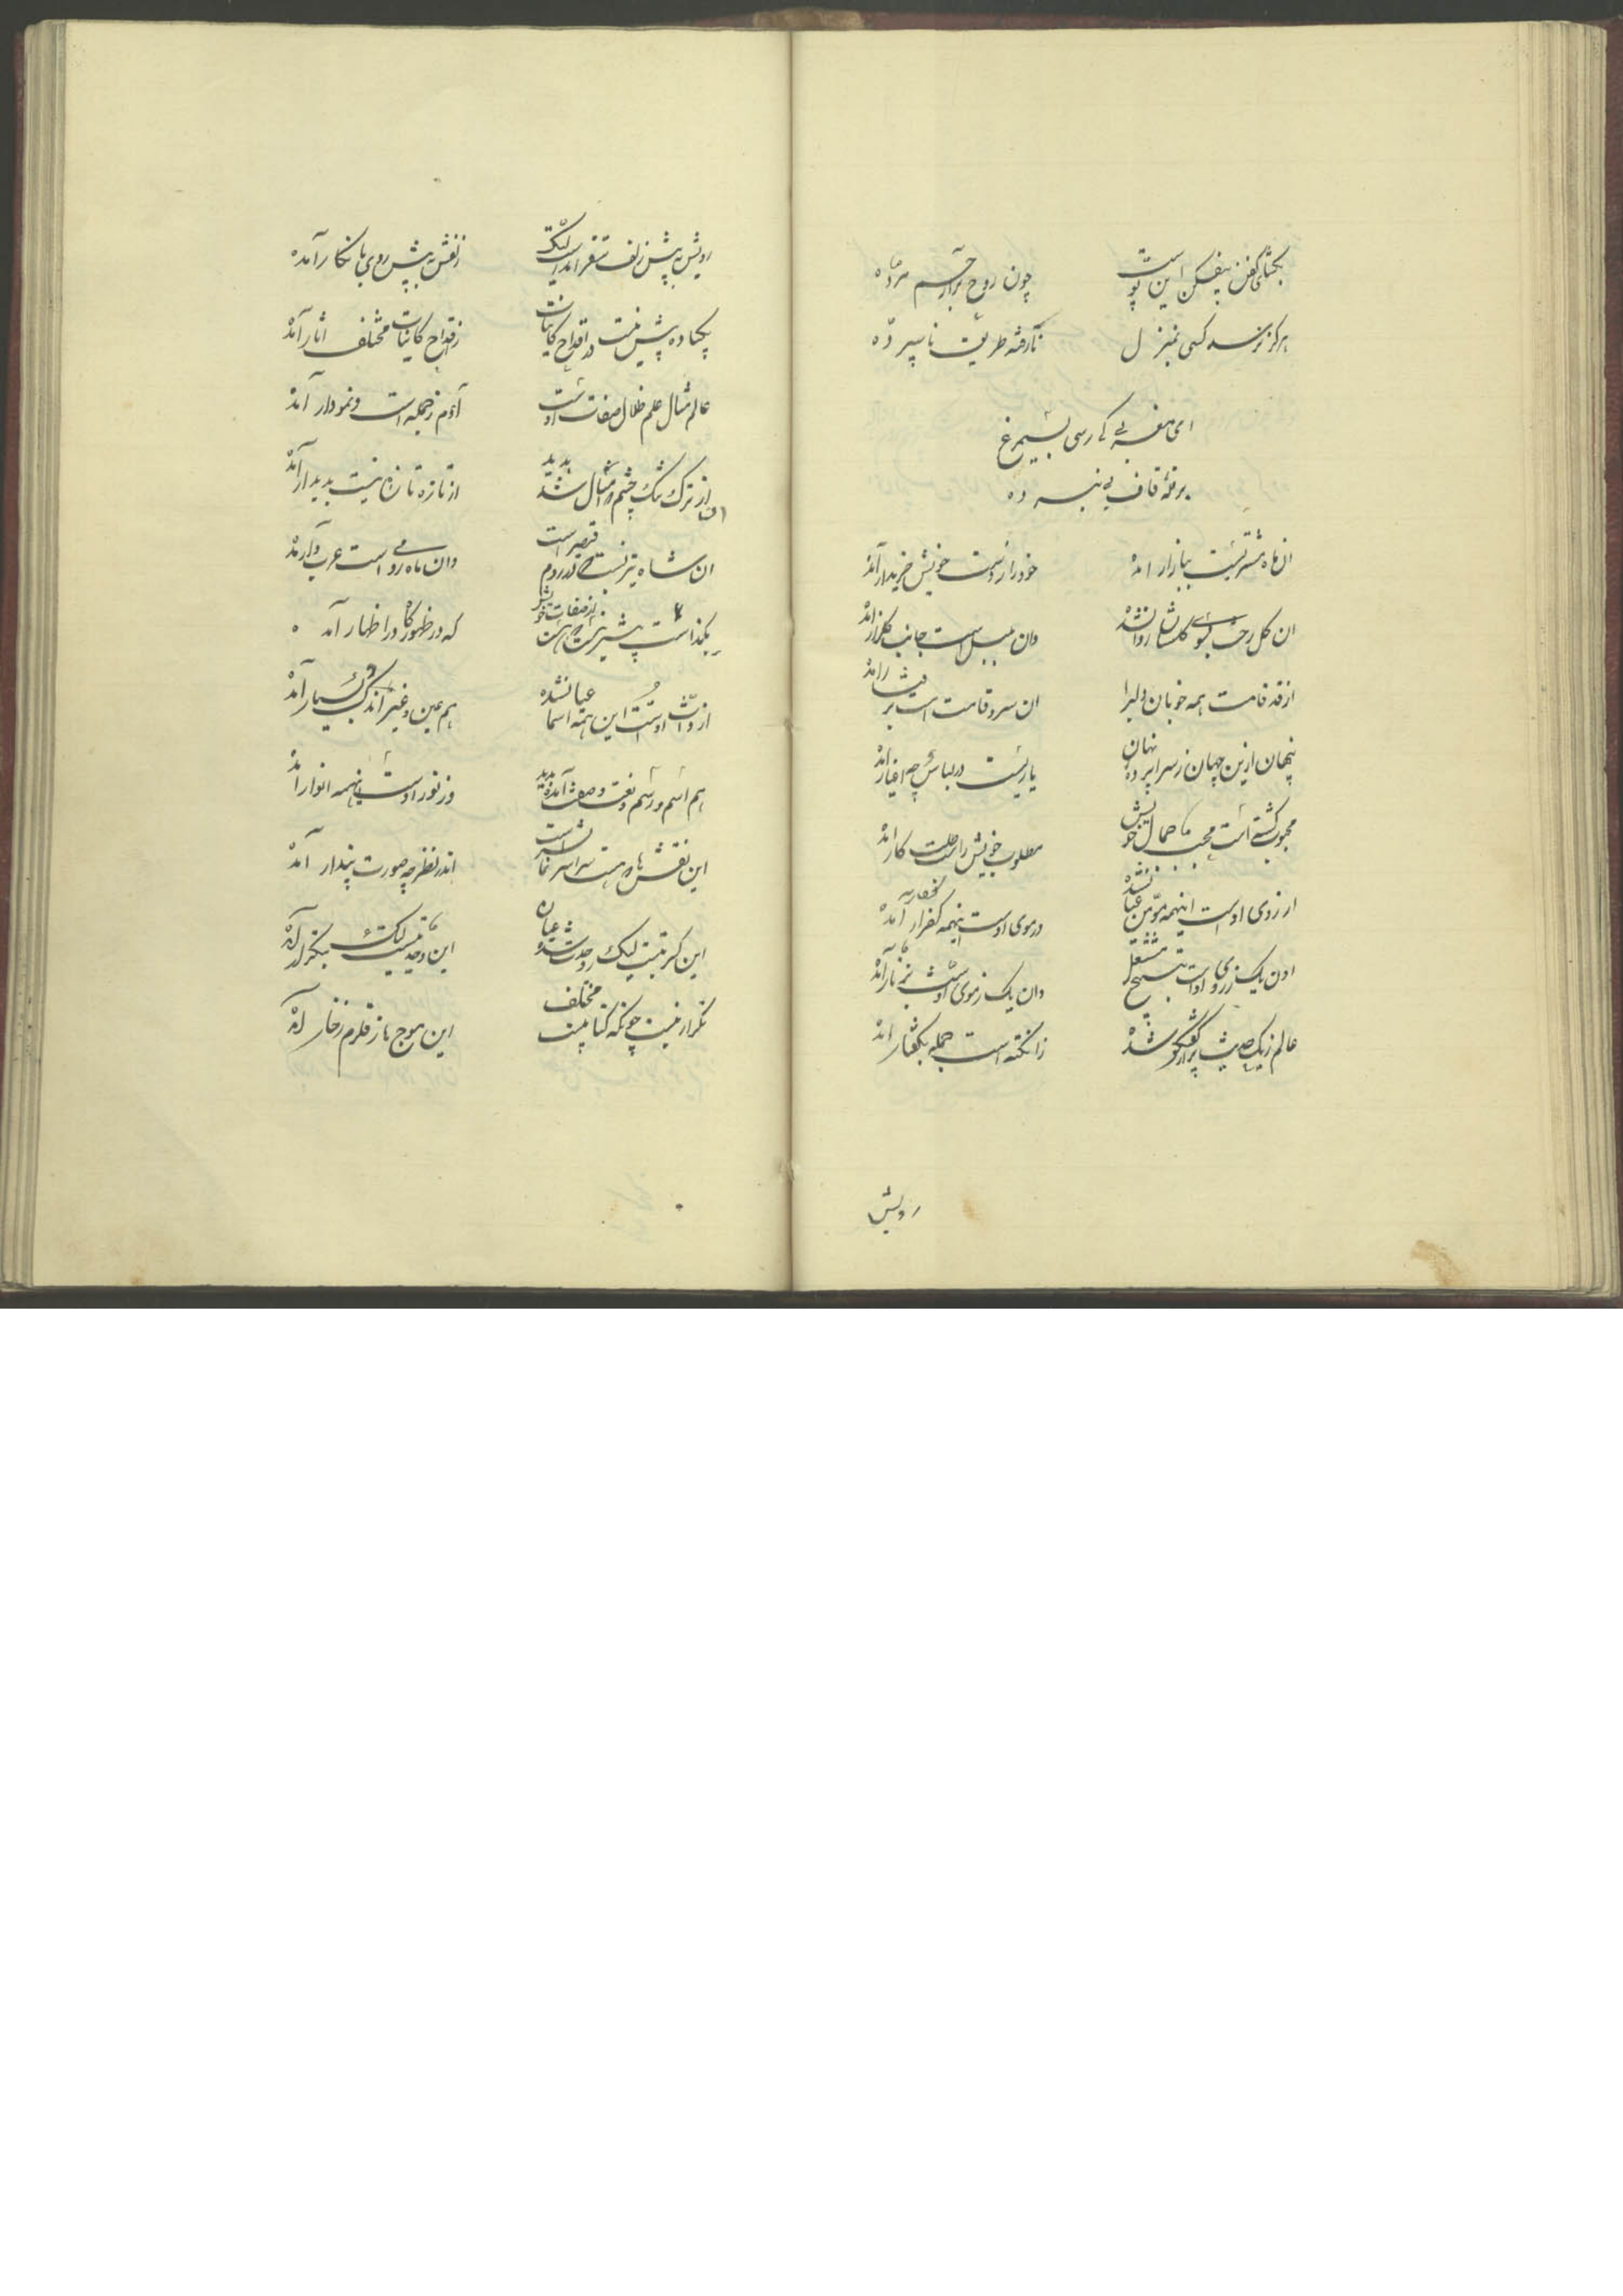 بگشای کفن بیفکن این پوست
چون روح برآ ز جسم مرده
هرگز نرسد کسی بمنزل
نارفته طریق ناسپرده
ای مغربی کی رسی بسیمرغ
برقله قاف پی نبرده
ان ماه مشتریست ببازار امده
خود را ز دست خویش خریدار آمده
ان گل رخست سوی گلستان روان شده
وان بلبل است جانب گلزار امده
از قد و قامت همه خوبان دلربا
ان سرو قامت است برفتار امده
پنهان ازین جهان ز سراپرده نهان
یاریست در لباس چو اغیار امده
محبوب گشته است محب جمال خویش
مطلوب خویش را طلبکار امده
از روی اوست اینهمه مؤمن عیان شده
در موی اوست اینهمه کفار آمده
وان یک ز روی اوست بتسبیح مشتغل
وان یک ز موی اوست بزنار آمده
عالم ز یک حدیث پر از گفتگو شده
زان نکته است جمله بگفتار امده
رویش
رویش به پیش زلف مقر امدست لیک
زلفش به پیش روی بانکار آمده
یکباده بیش نیست در اقداح کاینات
ز اقداح کاینات مختلف اثار آمده
عالم مثال علم ظلال صفات اوست
آدم ز جمله است و نمودار آمده
از ترک تنگ چشم مثال شد پدید
از تازه تازه نیست پدیدار آمده
ان شاه تیزتست که در روم قیصر است
وان ماه رومی است عرب وار امده
که در ظهور گاه در اظهار آمده
از ذات اوست این همه اسما عیان شده
هم عین و غیر اندک و بسیار آمده
هم اسم و رسم و نعت و صفت آمده پدید
وز نور اوست اینهمه انوار امده
این نقش ها که هست سراسر نمایش است
اندر نظر چو صورت پندار آمده
این کثرتیست لیک ز وحدت شده عیان
این وحدتیست لیک بتکرار آمده
تکرار نیست چونکه کتابیست مختلف
این موج ها ز قلزم زخار امده